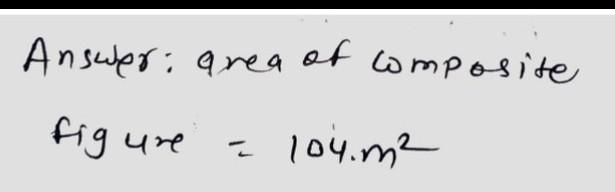 Answer: area of composite
figure = 104.m²